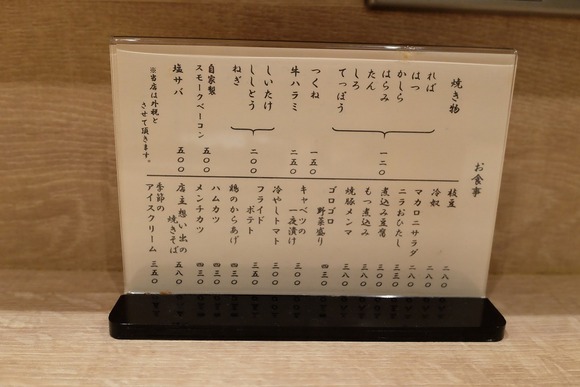 お食事
焼き物
れば
はつ
かしら
はらみ
たん
しろ
てっぽう
一二〇
つくね 一五〇
牛ハラミ 二五〇
しいたけ
ししとう
ねぎ
二〇〇
自家製
スモークベーコン 五〇〇
塩サバ 五〇〇
※当店は外税と
させて頂きます。
枝豆 二八〇
冷奴 二八〇
マカロニサラダ 二八〇
ニラおひたし 三三〇
煮込み豆腐 三三〇
もつ煮込み 三八〇
焼豚メンマ 三八〇
ゴロゴロ
野菜盛り 四三〇
キャベツの
一夜漬け 三〇〇
冷やしトマト 三〇〇
フライド
ポテト 三五〇
鶏のからあげ 四三〇
ハムカツ 四三〇
メンチカツ 四三〇
店主想い出の
焼きそば 五八〇
季節の
アイスクリーム 三五〇